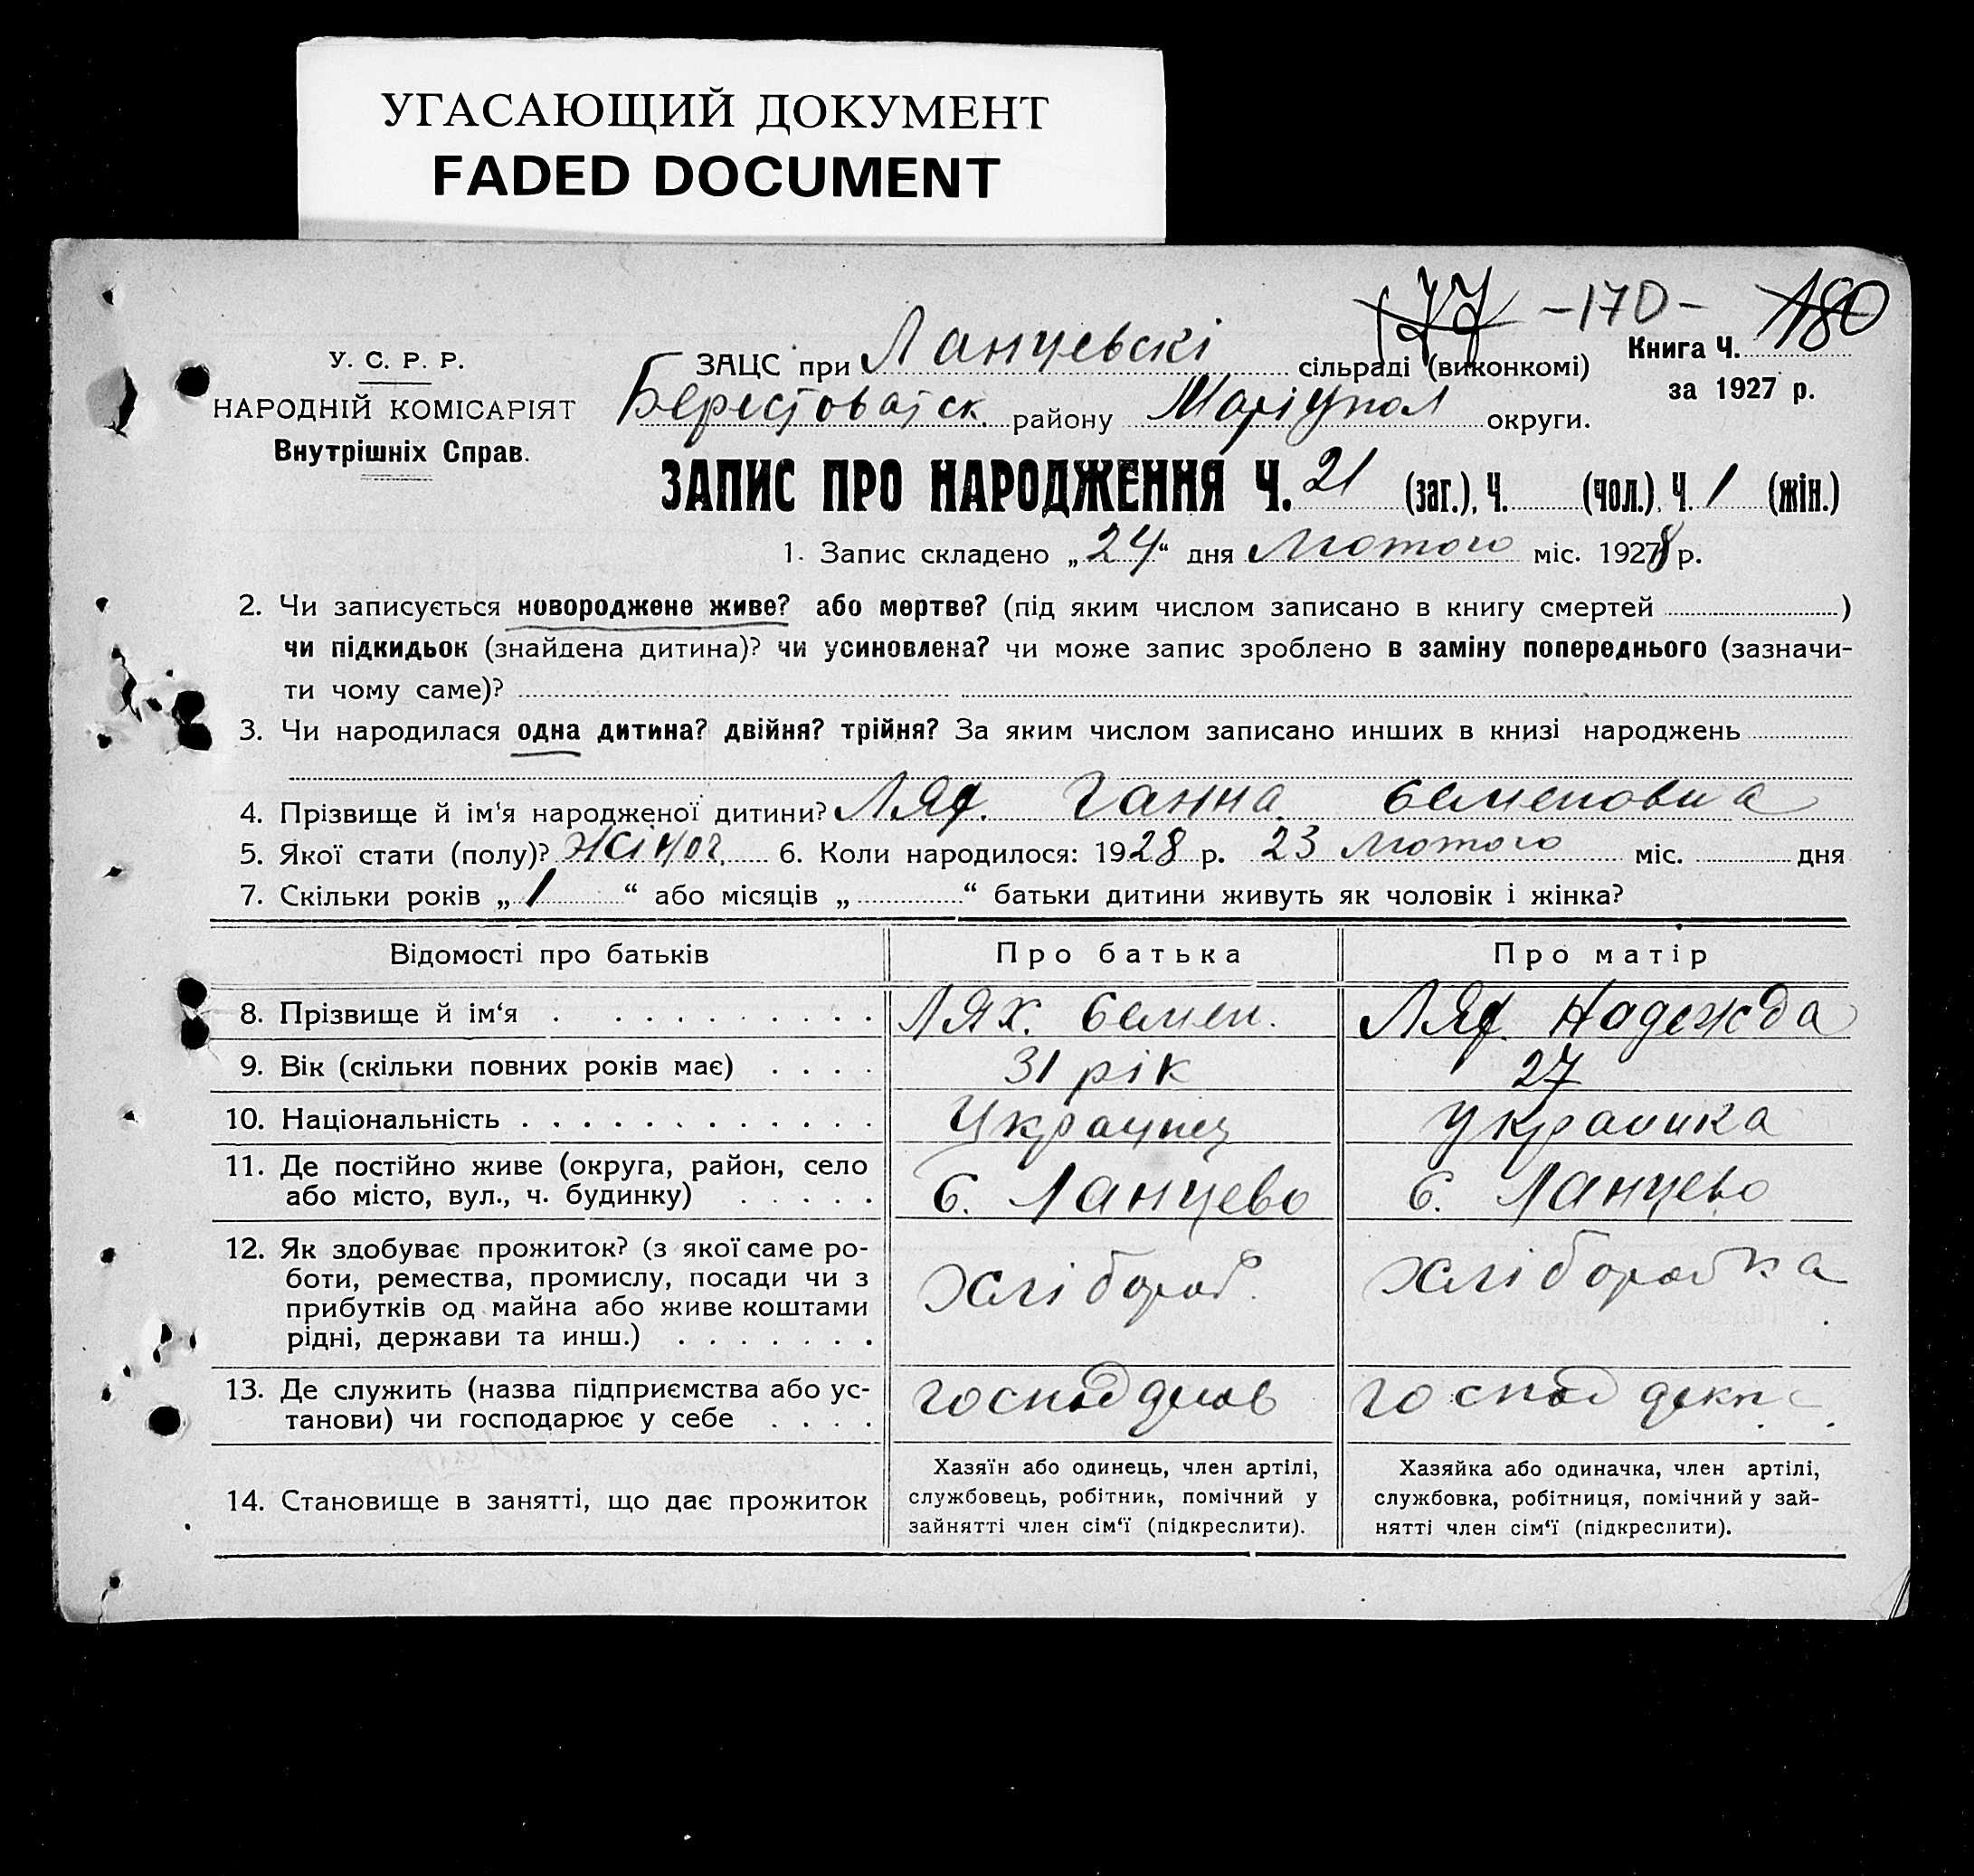 УГАСАЮЩИЙ ДОКУМЕНТ
FADED DOCUMENT
177 -170- 180
У. С. Р. Р.
НАРОДНІЙ КОМІСАРІЯТ
Внутрішніх Справ.
ЗАЦС при Ланцевскі сільраді (виконкомі)
Книга Ч.
за 1927 р.
Берестоватск. району Маріупол округи.
ЗАПИС ПРО НАРОДЖЕННЯ Ч. 21 (заг.), Ч. (чол.), Ч. 1 (жін.)
1. Запис складено „24“ дня Лютого міс. 1928 р.
2. Чи записується новороджене живе? або мертве? (під яким числом записано в книгу смертей )
чи підкидьок (знайдена дитина)? чи усиновлена? чи може запис зроблено в заміну попереднього (зазначи-
ти чому саме)?
3. Чи народилася одна дитина? двійня? трійня? За яким числом записано инших в книзі народжень
4. Прізвище й ім'я народженої дитини? Лях. Ганна. Семеновна
5. Якої стати (полу)? Жіноч. 6. Коли народилося: 1928 р. 23 Лютого міс. дня
7. Скільки років „1“ або місяців „ “ батьки дитини живуть як чоловік і жінка?
Відомості про батьків Про батька Про матір
8. Прізвище й ім'я Лях. Семен. Лях. Надежда
9. Вік (скільки повних років має) 31 рік 27
10. Національність Украинец Украинка
11. Де постійно живе (округа, район, село
або місто, вул., ч. будинку) С. Ланцево С. Ланцево
12. Як здобуває прожиток? (з якої саме ро-
боти, ремества, промислу, посади чи з
прибутків од майна або живе коштами
рідні, держави та инш.) Хлібороб. Хліборобка
13. Де служить (назва підприємства або ус-
танови) чи господарює у себе
14. Становище в занятті, що дає прожиток
Хазяїн або одинець, член артілі,
службовець, робітник, помічний у
зайнятті член сім'ї (підкреслити).
Хазяйка або одиначка, член артілі,
службовка, робітниця, помічний у зай-
нятті член сім'ї (підкреслити).